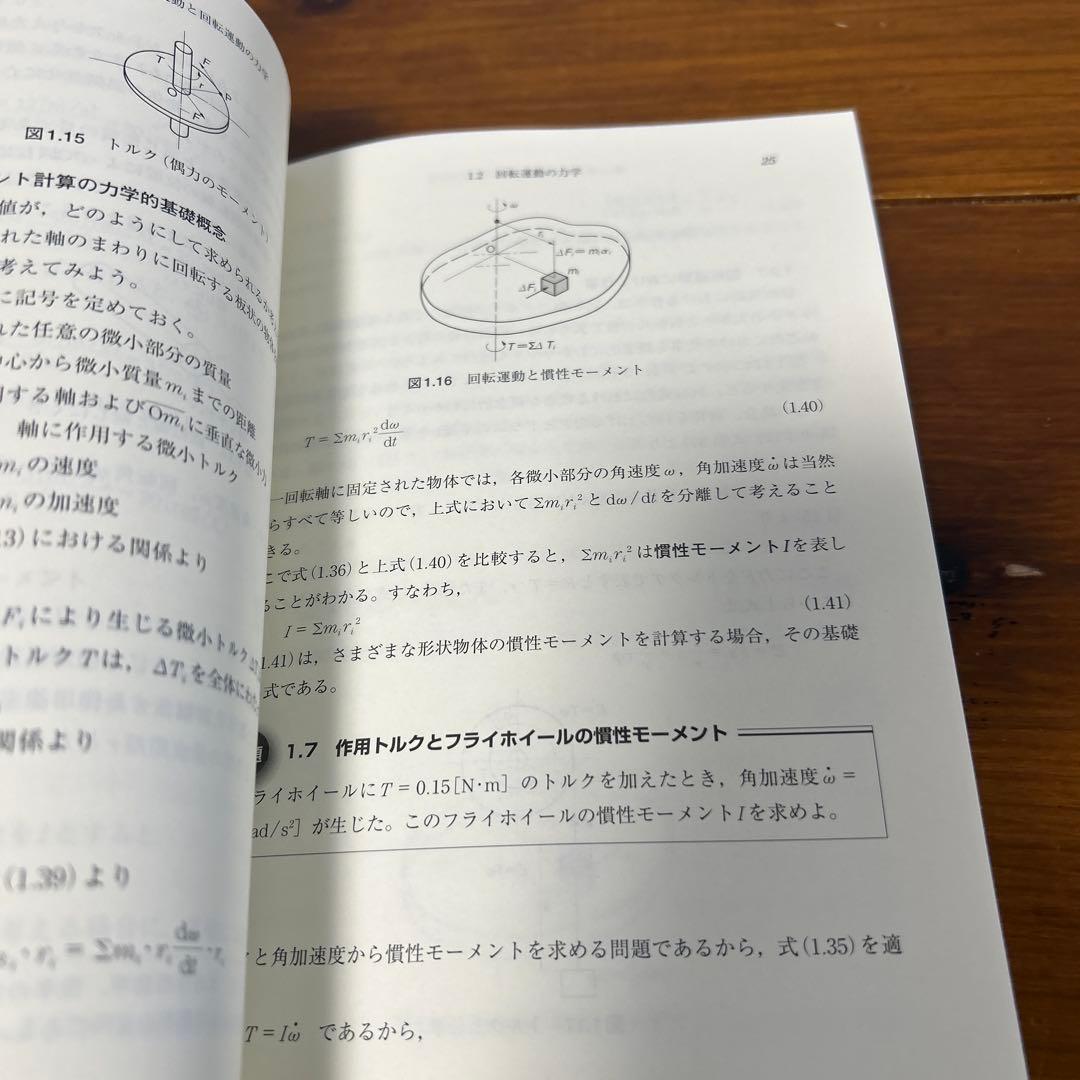 動と回転運動の力学
T
F
r
P
O
F
図1.15 トルク(偶力のモーメント)
ント計算の力学的基礎概念
値が,どのようにして求められるか
れた軸のまわりに回転する板状の
考えてみよう。
に記号を定めておく。
れた任意の微小部分の質量
心から微小質量miまでの距離
用する軸およびOmiに垂直な微小力
軸に作用する微小トルク
miの速度
miの加速度
3)における関係より
Fiにより生じる微小トルク
トルクTは,ΔTiを全体にわ
関係より
(1.39)より
・ri = Σmi・ri dω/dt・ri
1.2 回転運動の力学
25
ω
O
ri
ΔFi=miαi
mi
ΔFi
T=ΣΔTi
図1.16 回転運動と慣性モーメント
T = Σmiri² dω/dt (1.40)
一回転軸に固定された物体では,各微小部分の角速度ω,角加速度ω̇は当然
らすべて等しいので,上式においてΣmiri²とdω/dtを分離して考えること
きる。
こで式(1.36)と上式(1.40)を比較すると,Σmiri²は慣性モーメントIを表し
ることがわかる。すなわち,
I = Σmiri² (1.41)
1.41)は,さまざまな形状物体の慣性モーメントを計算する場合,その基礎
式である。
題 1.7 作用トルクとフライホイールの慣性モーメント
ライホイールにT = 0.15[N·m]のトルクを加えたとき,角加速度ω̇ =
ad/s²]が生じた。このフライホイールの慣性モーメントIを求めよ。
と角加速度から慣性モーメントを求める問題であるから,式(1.35)を適
T = Iω̇ であるから,